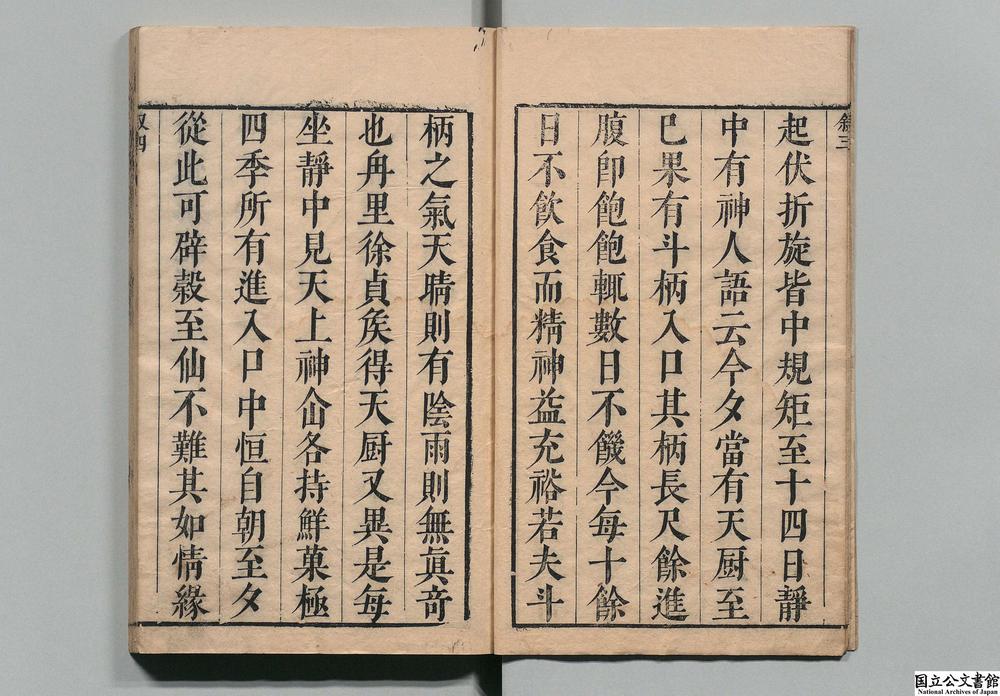 敘三
起伏折旋皆中規矩至十四日靜
中有神人語云今夕當有天厨至
巳果有斗柄入口其柄長尺餘進
腹卽飽飽輒數日不饑今每十餘
日不飮食而精神益充裕若夫斗
柄之氣天晴則有陰雨則無眞奇
也舟里徐貞矦得天厨又異是每
坐靜中見天上神仚各持鮮菓極
四季所有進入口中恒自朝至夕
從此可辟穀至仙不難其如情緣
叙四
国立公文書館
National Archives of Japan